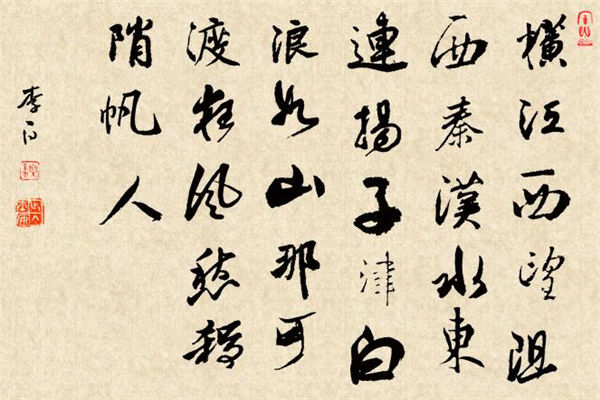 橫江西望阻
西秦漢水東
連揚子津白
浪如山那可
渡狂風愁殺
陗帆人
李白